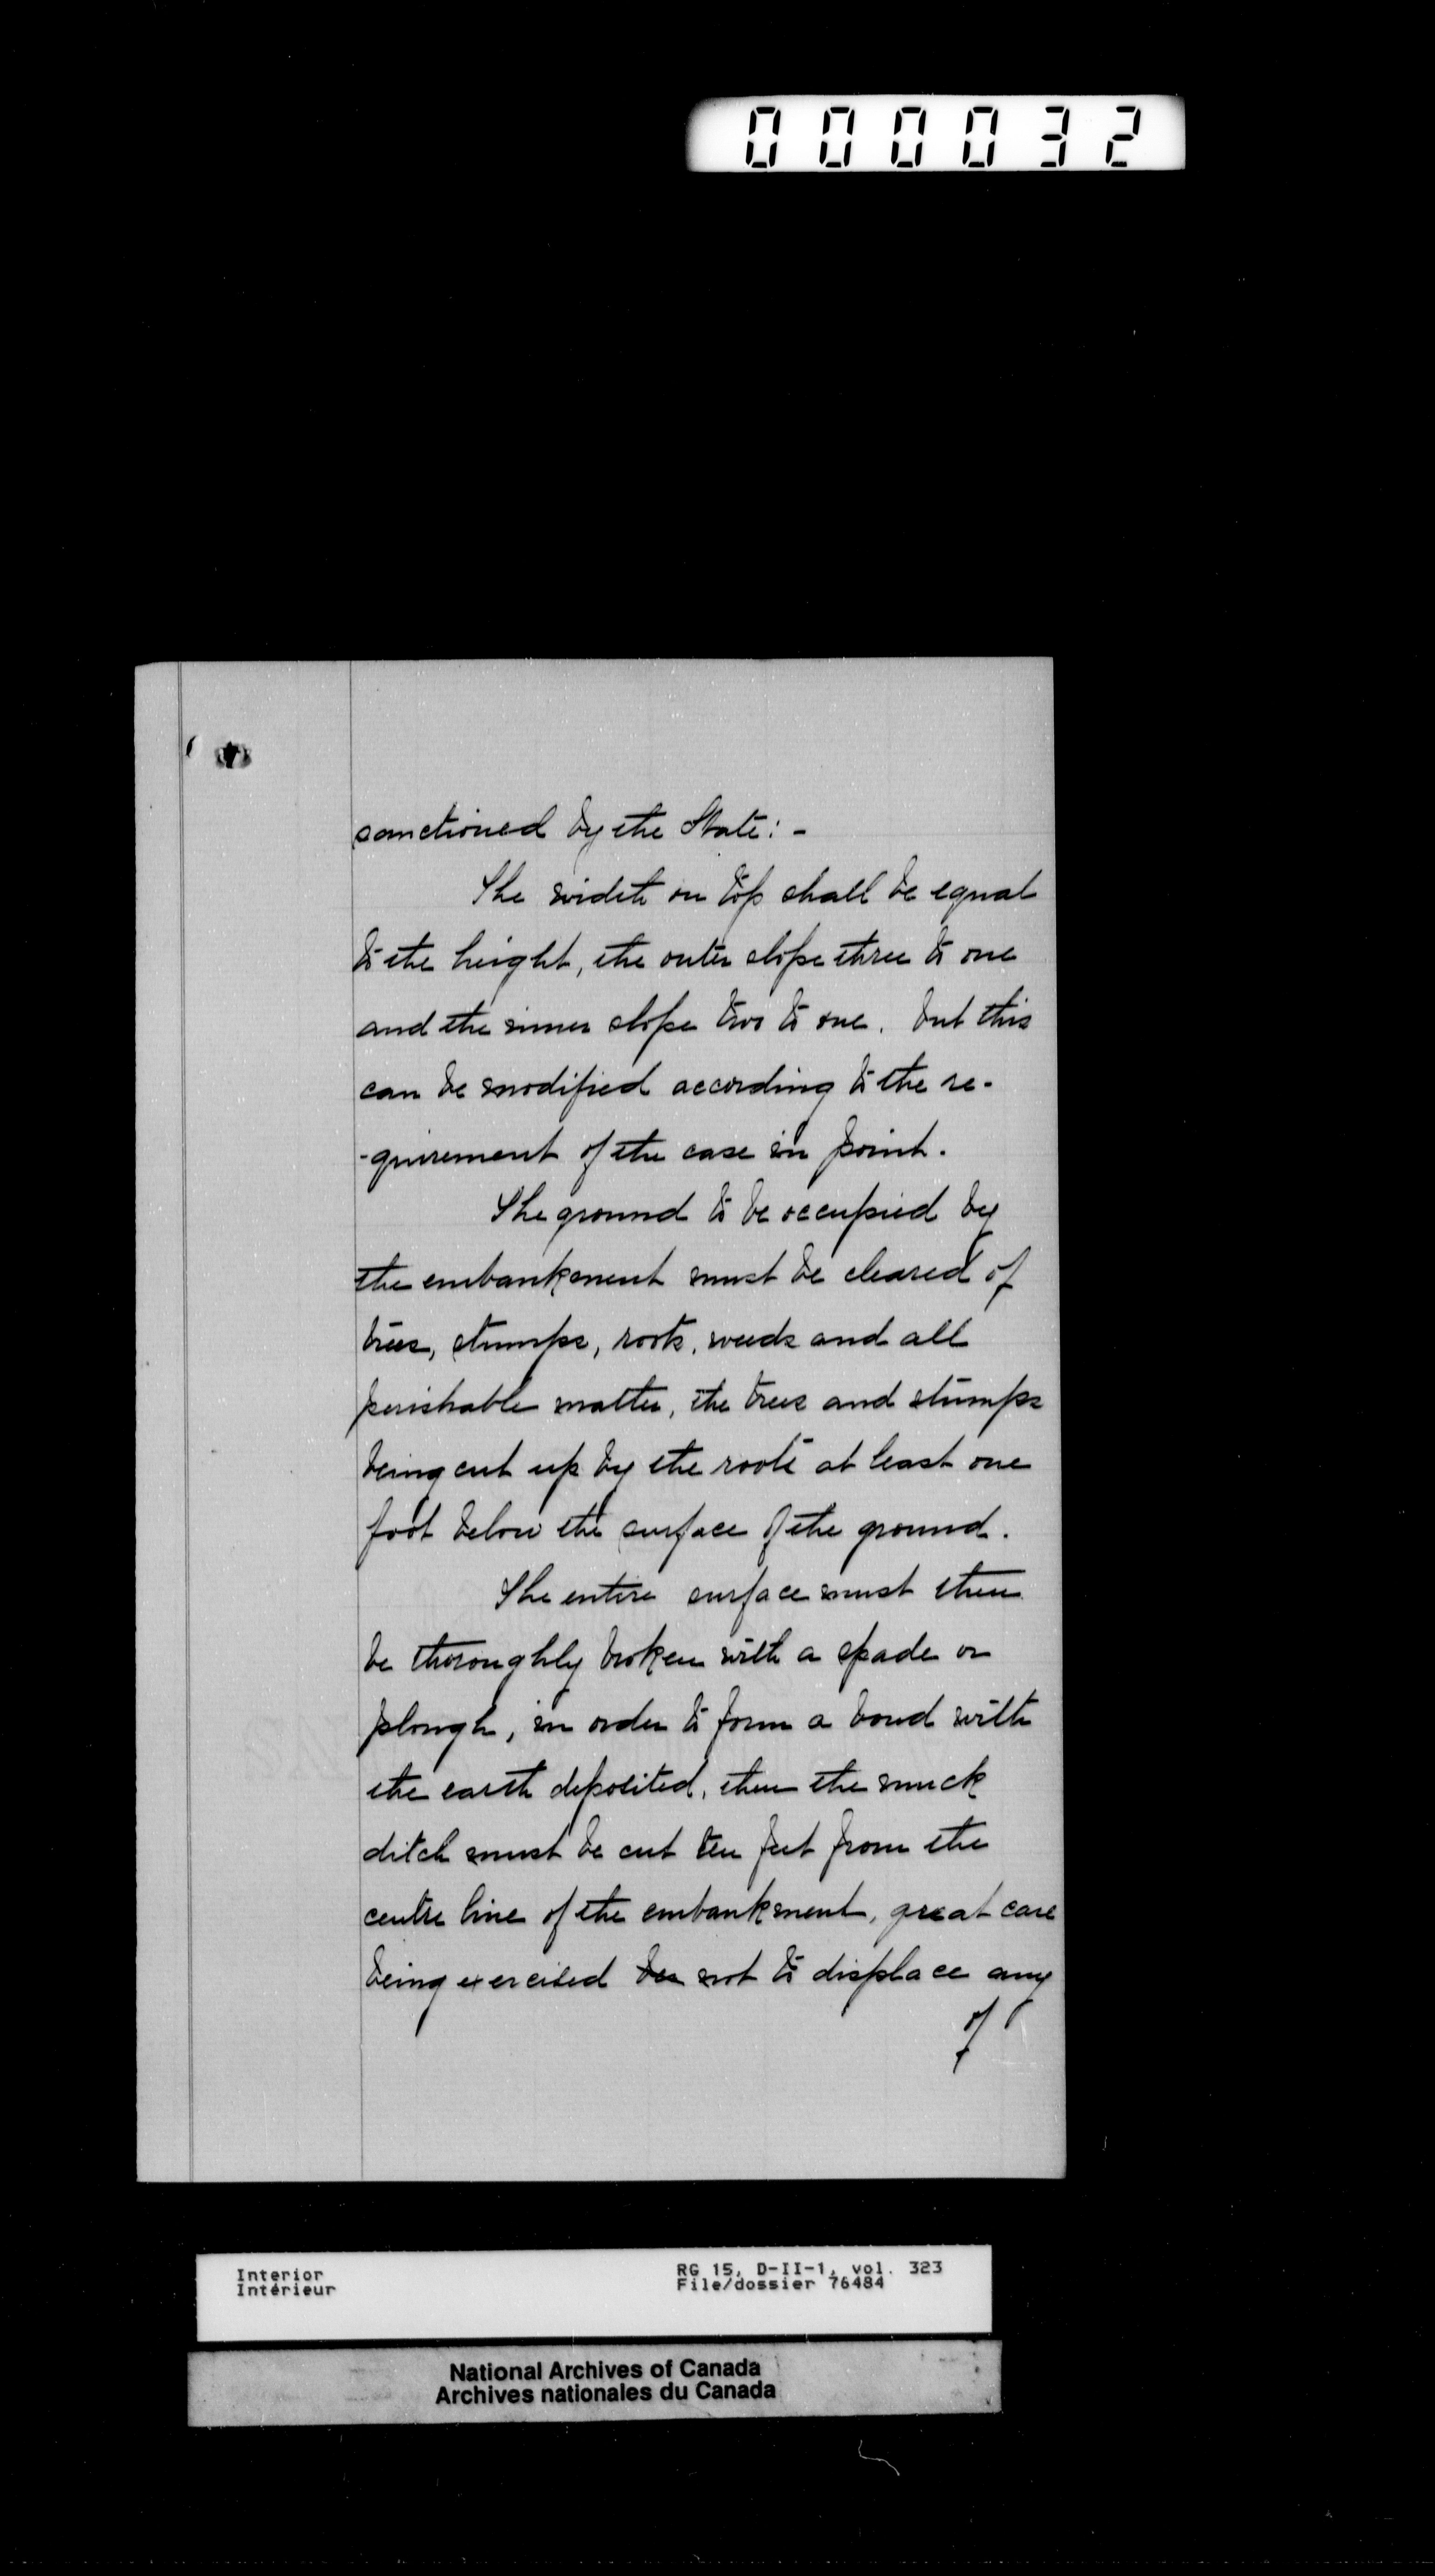 000032
sanctioned by the State:-
The width on top shall be equal
to the height, the outer slope three to one
and the inner slope two to one. but this
can be modified according to the re-
-quirement of the case in point.
The ground to be occupied by
the embankment must be cleared of
trees, stumps, roots, weeds and all
perishable matter, the trees and stumps
being cut up by the roots at least one
foot below the surface of the ground.
The entire surface must then
be thoroughly broken with a spade or
plough, in order to form a bond with
the earth deposited, then the muck
ditch must be cut ten feet from the
centre line of the embankment, great care
being exercised not to displace any
of
Interior RG 15, D-II-1, vol. 323
Intérieur File/dossier 76484
National Archives of Canada
Archives nationales du Canada